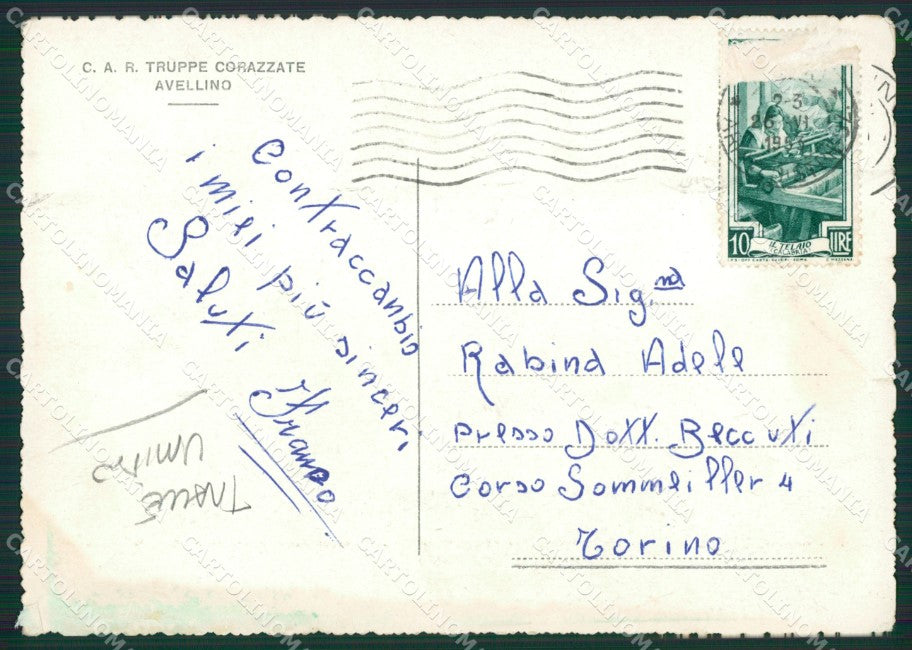 C. A. R. TRUPPE CORAZZATE
AVELLINO
Contraccanbio
i miei più sinceri
Saluti
Franco
TRACCE
UMIDO
2-3
26 VI
10 LIRE
IL TELAIO
(CALABRIA)
Alla Sig.na
Rabina Adele
presso Dott. Beccuti
Corso Sommeiller 4
Torino
CARTOLINOMANIA